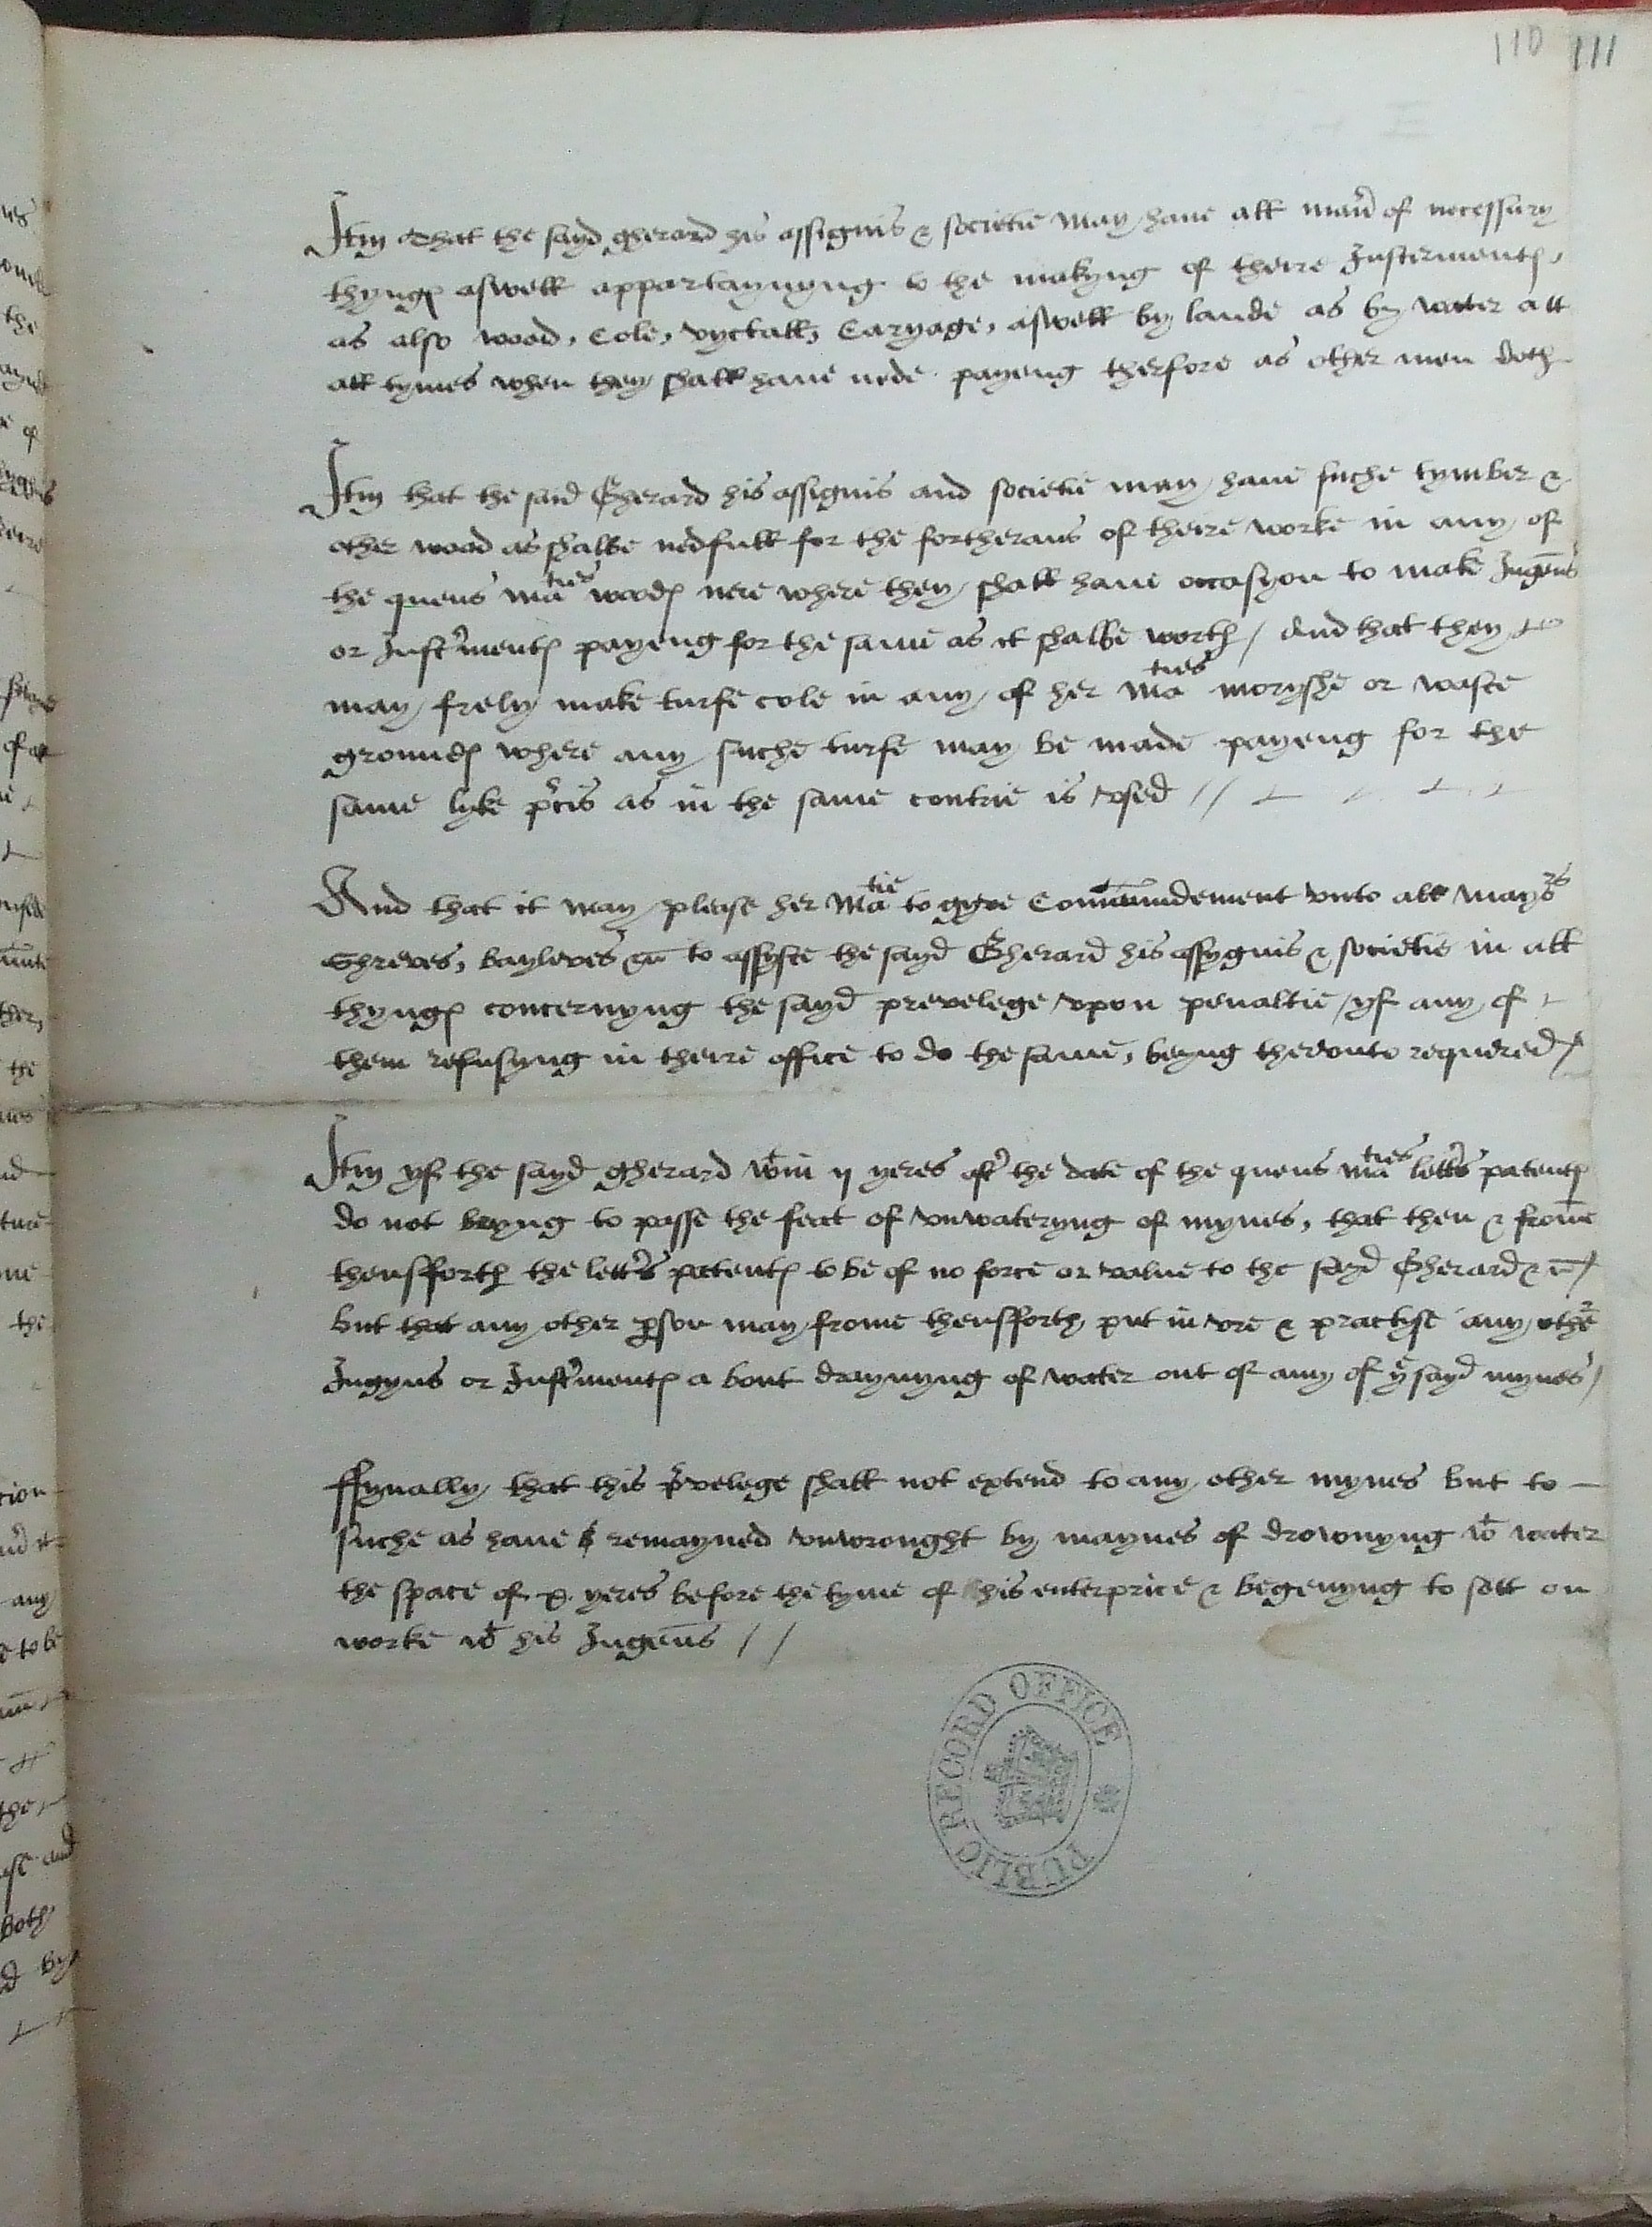 110 111
Itm that the sayd gherard his assignis & societie may have all man̄ of necessary
thyngs aswell appartaynyng to the makyng of theire Insterments,
as also wood, Cole, vyctall, Caryage, aswell by lande as by water att
all tymes when they shall have nede payeng therfore as other men doth
Itm that the said Gherard his assignis and societie may have suche tymber &
other wood as shalbe nedfull for the fortherans of theire worke in any of
the quens Maties woods nere where they shall have occasyon to make Ingens
or Instrments payeng for the same as it shalbe worth / And that they
may frely make turfe cole in any of her Maties moryshe or waste
grounds where any suche turfe may be made payeng for the
same lyke prcis as in the same contrie is vsed //
And that it may please her Matie to gyve Comaundement vnto all Mayrs
Shreves, bayleves &c to assyste the sayd Gherard his assygnis & societie in all
thyngs concernyng the sayd prevelege vpon penaltie / yf any of
them refusyng in theire office to do the same, beyng therevnto requered /
Itm yf the sayd gherard wtin ij yeres aftr the date of the quens Maties lettrs patents
do not bryng to passe the feat of vnwateryng of mynes, that then & frome
thensfforth the lettrs patents to be of no force or value to the sayd Gherard &c /
but that any other pson may frome thensfforth put in vre & practyse any other
Ingyns or Instrments a bout draynyng of water out of any of ye sayd mynes /
ffynally that this pvelege shall not extend to any other mynes but to
suche as have remayned vnwrought by maynes of drownyng wt water
the space of .x. yeres before the tyme of his enterprice & begenyng to sett on
worke wt his Ingens //
PUBLIC RECORD OFFICE